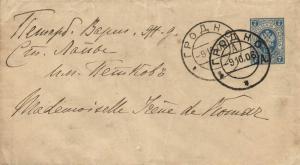 Петерб. Варш. ж. д.
Ст. Лапы
им. Петково
Mademoiselle Irène de Komar
ГРОДН
-9.10
ГРОДНО
-9.10.06
7